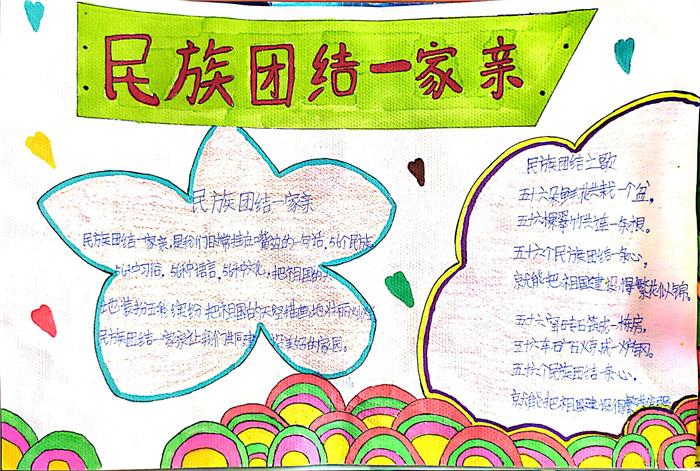 民族团结一家亲
民族团结一家亲
民族团结一家亲,是我们日常挂在嘴边的一句话,56个民族
56种习俗,56种语言,56种文化,把祖国的大
地装扮五彩缤纷把祖国的天空描画地壮丽
民族团结一家亲让我们共同建设美好的家园。
民族团结之歌
五十六朵 花共栽一个盆,
五十六棵翠竹共连一条根。
五十六个民族团结一条心,
就能把祖国建设得繁花似锦。
五十六 砖筑成一栋房,
五十六车矿石炼成一炉钢。
五十六个民族团结一条心,
就能把祖国建设得繁